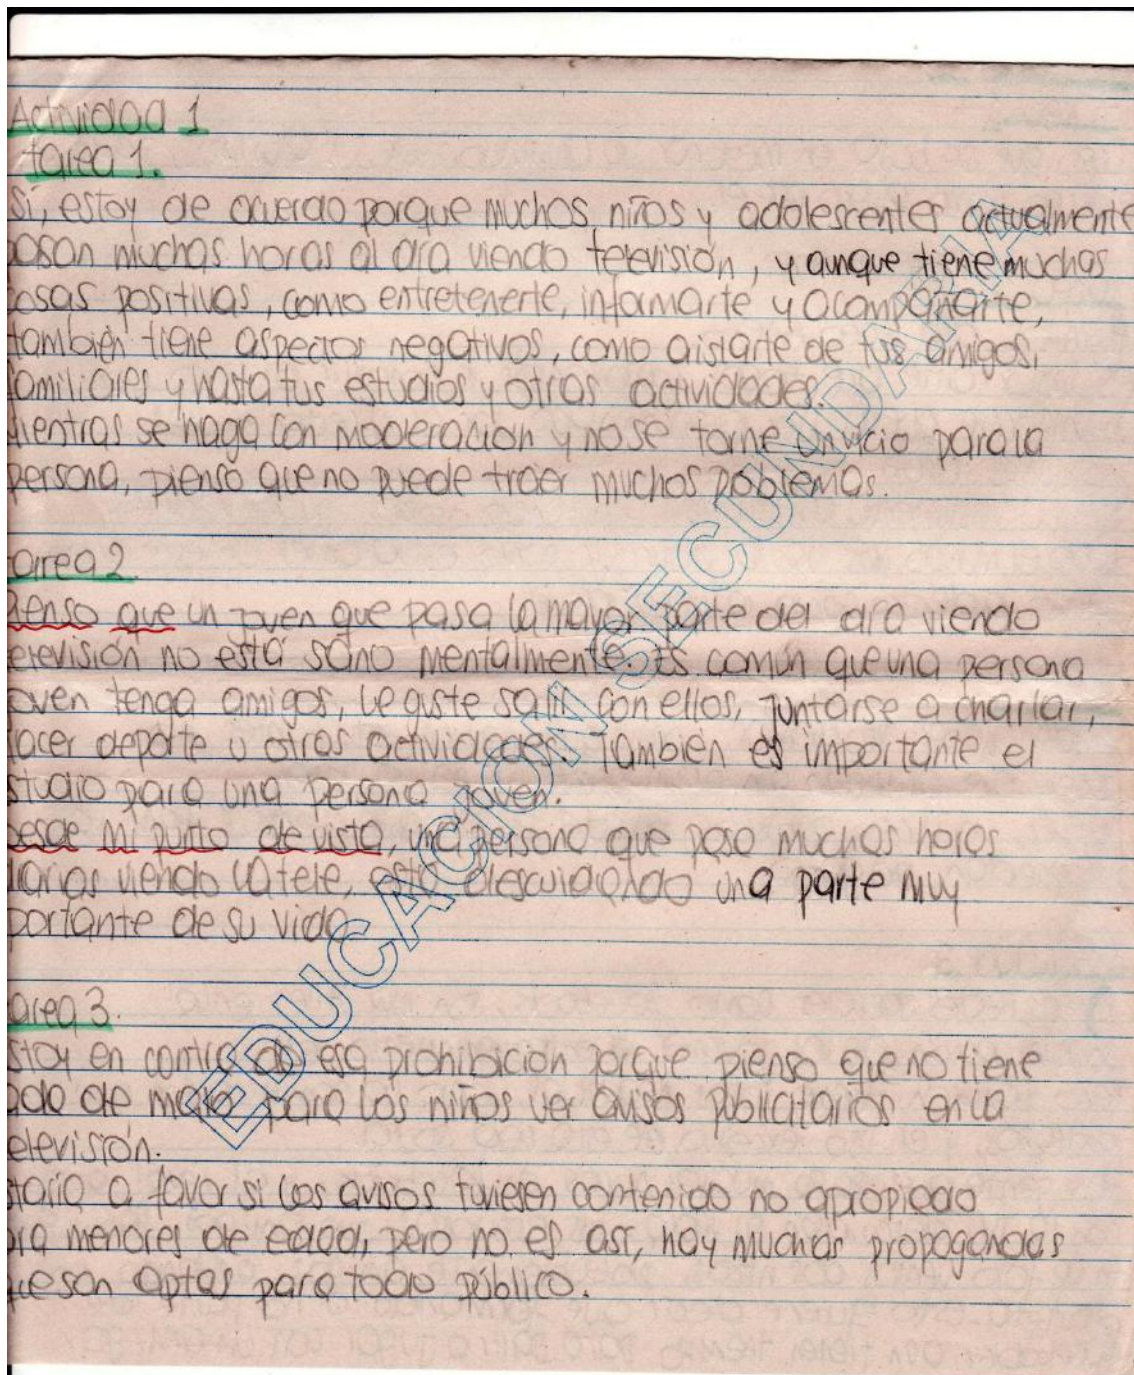 Actividad 1
tarea 1.
Sí, estoy de acuerdo porque muchos niños y adolescentes actualmente
pasan muchas horas al día viendo televisión, y aunque tiene muchas
cosas positivas, como entretenerte, informarte y acompañarte,
también tiene aspectos negativos, como aislarte de tus amigos,
familiares y hasta tus estudios y otras actividades.
Mientras se haga con moderación y no se torne un vicio para la
persona, pienso que no puede traer muchos problemas.
tarea 2
Pienso que un joven que pasa la mayor parte del día viendo
televisión no está sano mentalmente. Es común que una persona
joven tenga amigos, le guste salir con ellos, juntarse a charlar,
hacer deporte u otras actividades. También es importante el
estudio para una persona joven.
Desde mi punto de vista, una persona que pasa muchas horas
diarias viendo la tele, está descuidando una parte muy
portante de su vida
tarea 3.
Estoy en contra de esa prohibición porque pienso que no tiene
nada de malo para los niños ver avisos publicitarios en la
televisión.
Estaría a favor si los avisos tuviesen contenido no apropiado
para menores de edad, pero no es así, hay muchas propagandas
que son aptas para todo público.
EDUCACION SECUNDARIA